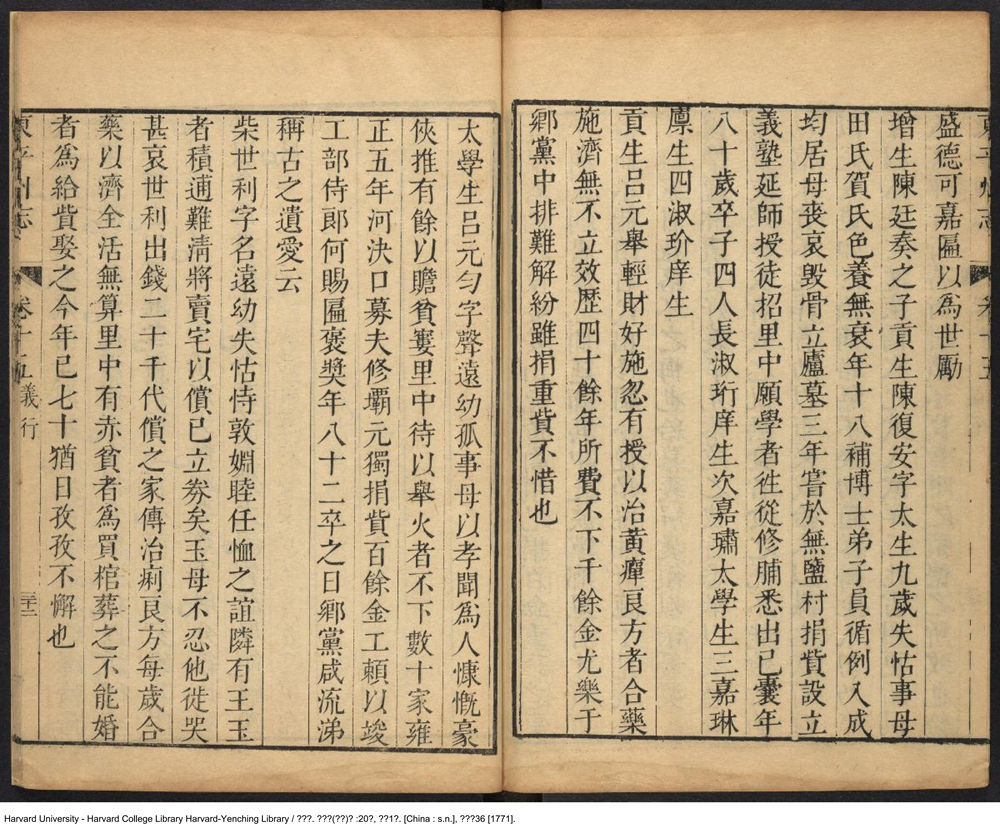 盛德可嘉匾以為世勵
增生陳廷奏之子貢生陳復安字太生九歲失怙事母
田氏賀氏色養無衰年十八補博士弟子員循例入成
均居母喪哀毀骨立廬墓三年嘗於無鹽村捐貲設立
義塾延師授徒招里中願學者徃從修脯悉出己囊年
八十歲卒子四人長淑珩庠生次嘉璛太學生三嘉琳
廪生四淑玠庠生
貢生呂元舉輕財好施忽有授以治黃癉良方者合藥
施濟無不立效歷四十餘年所費不下千餘金尤樂于
鄉黨中排難解紛雖捐重貲不惜也
太學生呂元勻字聲遠幼孤事母以孝聞為人慷慨豪
俠推有餘以贍貧窶里中待以舉火者不下數十家雍
正五年河決口募夫修壩元獨捐貲百餘金工頼以竣
工部侍郎何賜匾褒獎年八十二卒之日鄉黨咸流涕
稱古之遺愛云
柴世利字名遠幼失怙恃敦婣睦任恤之誼隣有王玉
者積逋難清將賣宅以償已立劵矣玉母不忍他徙哭
甚哀世利出錢二十千代償之家傳治痢良方每歲合
藥以濟全活無算里中有赤貧者為買棺葬之不能婚
者為給貲娶之今年已七十猶日孜孜不懈也
東平州志
卷十五
義行
Harvard University - Harvard College Library Harvard-Yenching Library / ???. ???(??)? :20?, ??1?. [China : s.n.], ???36 [1771].